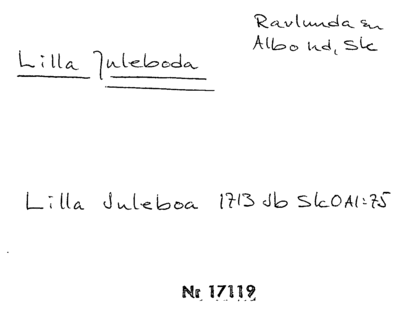 Ravlunda sn
Albo hd, Sk
Lilla Juleboda
Lilla Juleboa 1713 Jb SkOAI:75
Nr 17119